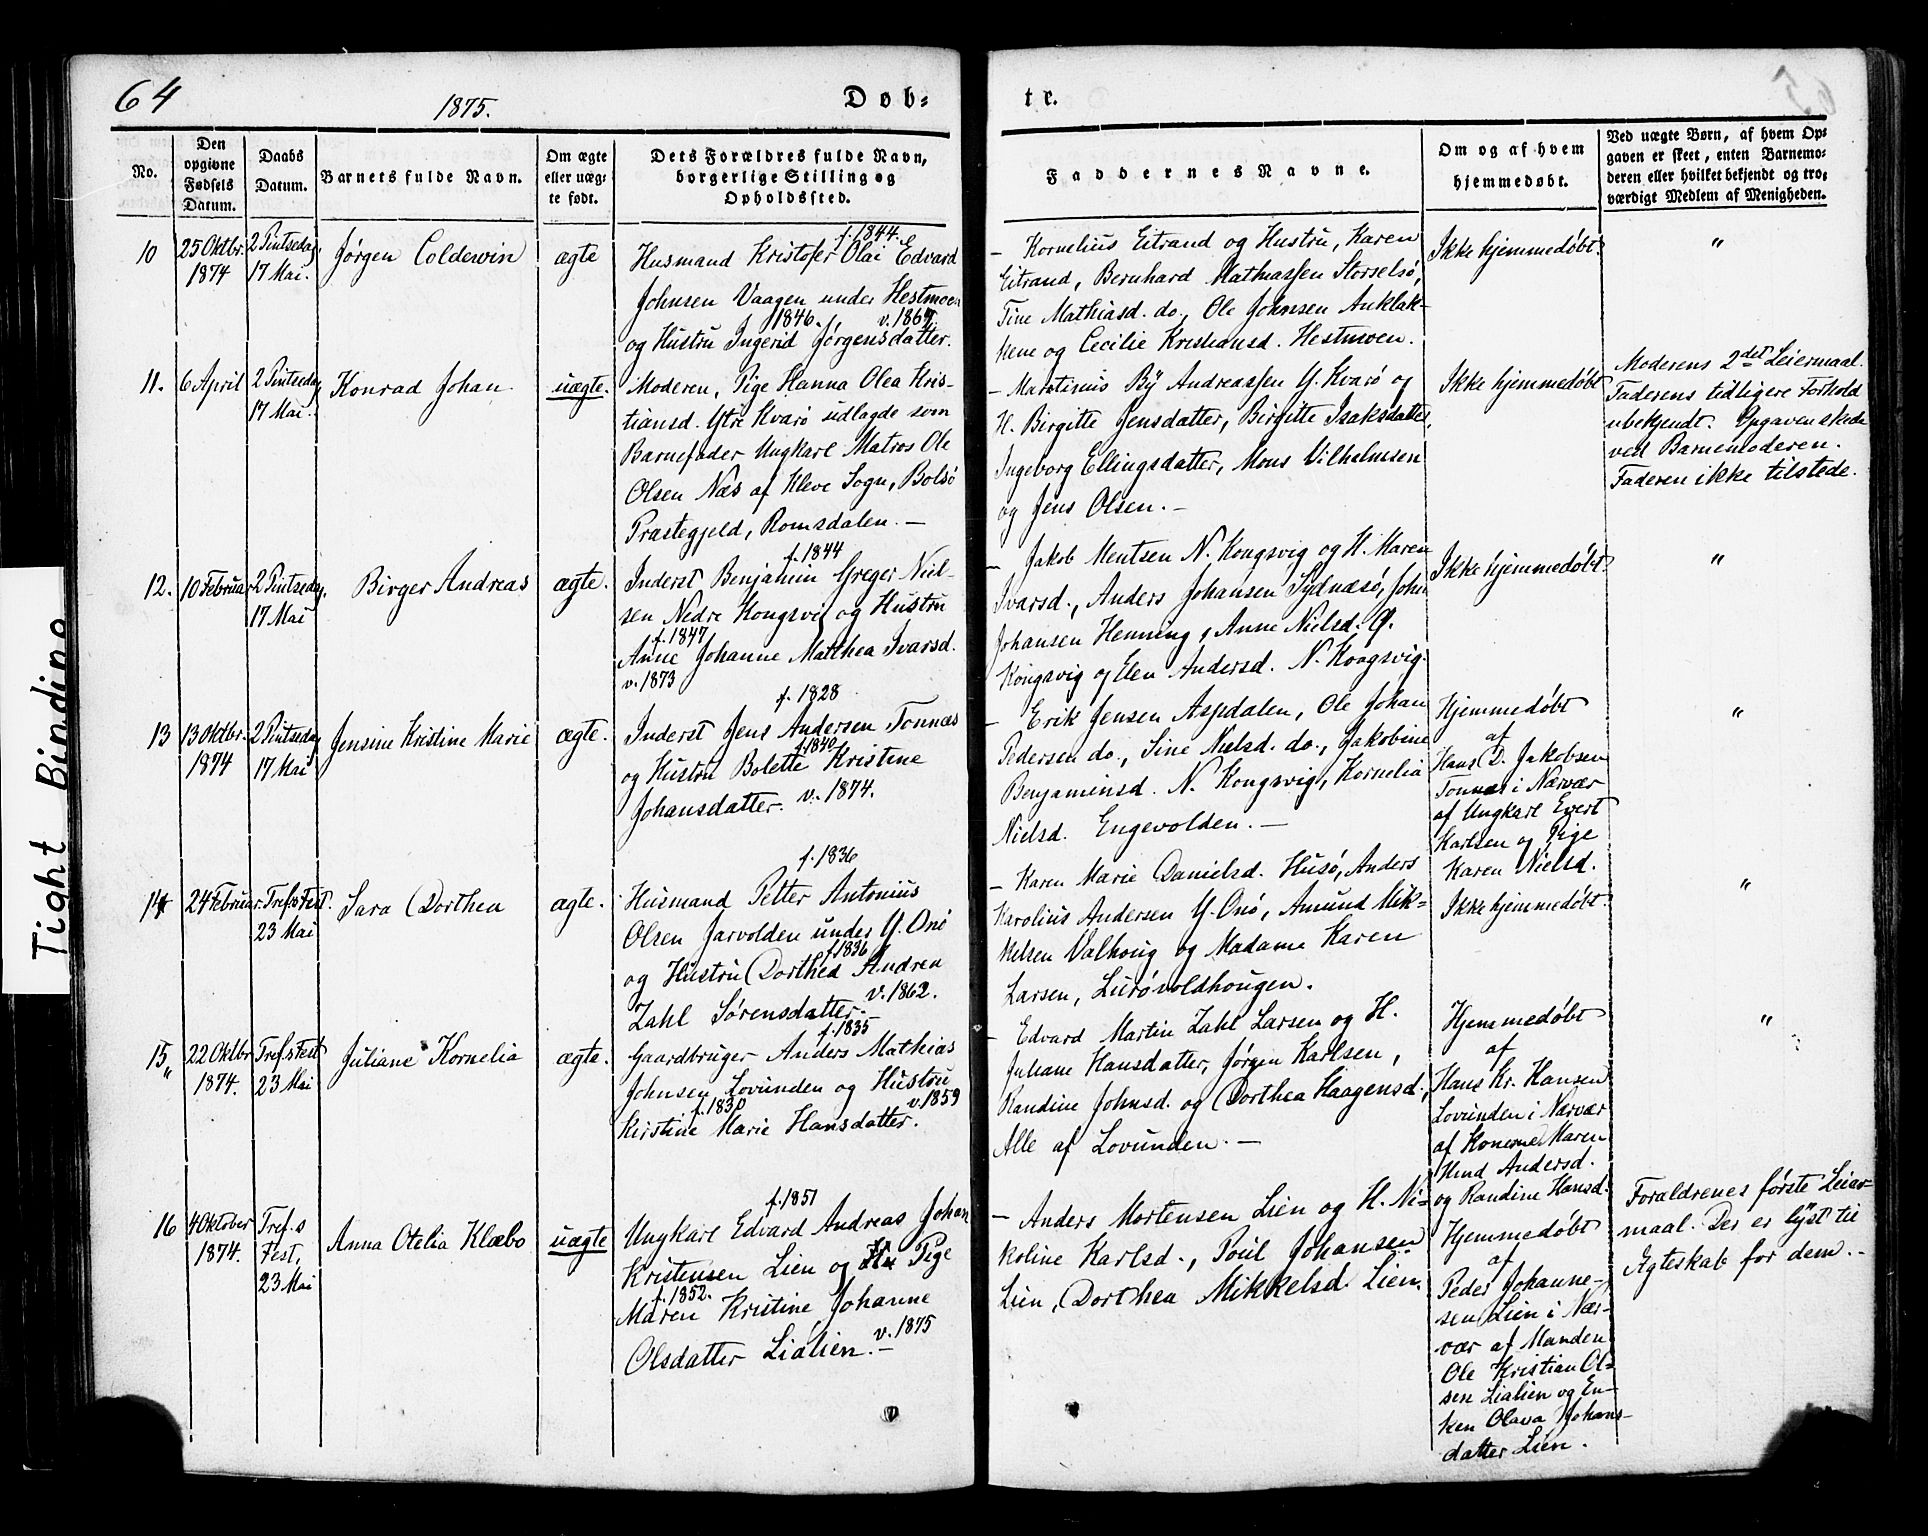 64
1875.
Døb-
te.
No.
Den opgivne Fødsels Datum.
Daabs Datum.
Barnets fulde Navn.
Om ægte eller uægte født.
Dets Forældres fulde Navn, borgerlige Stilling og Opholdssted.
Faddernes Navne.
Om og af hvem hjemmedøbt.
Ved uægte Børn, af hvem Op-
gaven er skeet, enten Barnemo-
deren eller hvilket bekjendt og tro-
værdigt Medlem af Menigheden.
10
25 Oktbr.
1874
2 Pintsedag
17 Mai.
Jørgen Coldewin
ægte
f. 1844.
Husmand Kristofer Olai Edvard
Johnsen Vaagen under Hestmoen
1846. v. 1867.
og Hustru Ingerid Jørgensdatter.
– Kornelius Eitrand og Hustru, Karen
Eitrand, Bernhard Mathiassen Storselsø,
Tine Mathiasd. do., Ole Johnsen Anklak-
kene og Cecilie Kristiansd. Hestmoen.
Ikke hjemmedøbt.
"
11.
6 April
2 Pintsedag
17 Mai.
Konrad Johan
uægte.
Moderen, Pige Hanna Olea Kris-
tiansd. Ytre Kvarø udlagde som
Barnefader Ungkarl Matros Ole
Olsen Næs af Kleve Sogn, Bolsø
Præstegjeld, Romsdalen. –
– Martinus By Andreassen Y. Kvarø og
H. Birgitte Jensdatter, Birgitte Isaksdatter,
Ingeborg Ellingsdatter, Mons Vilhelmsen
og Jens Olsen. –
Ikke hjemmedøbt
Moderens 2det Leiermaal.
Faderens tidligere Forhold
ubekjendt. Opgaven skede
ved Barnemoderen.
Faderen ikke tilstede.
12.
10 Februar
2 Pintsedag.
17 Mai
Birger Andreas
ægte.
f. 1844
Inderst Benjamin Greger Niel-
sen Nedre Kongsvig og Hustru
f. 1847
Anne Johanne Matthea Ivarsd.
v. 1873
– Jakob Mentsen N. Kongsvig og H. Maren
Ivarsd., Anders Johansen Sydnæsø, John
Johansen Henning, Anne Nielsd. Ø.
Kongsvig og Elen Andersd. N. Kongsvig.
Ikke hjemmedøbt.
"
13
13 Oktbr.
1874
2 Pintsedag
17 Mai
Jensine Kristine Marie
ægte.
f. 1828
Inderst Jens Andersen Tonnæs
f. 1840
og Hustru Bolette Kristine
Johansdatter. v. 1874.
– Erik Jensen Aspdalen, Ole Johan
Pedersen do., Sine Nielsd. do., Jakobine
Benjaminsd. N. Kongsvig, Kornelia
Nielsd. Engevolden. –
Hjemmedøbt
af
Hans D. Jakobsen
Tonnæs i Nærvær
af Ungkarl Evert
Karlsen og Pige
Karen Nielsd.
"
14
24 Februar.
Tref.s Fest.
23 Mai
Sara Dorthea
ægte.
f. 1836
Husmand Petter Antonius
Olsen Jarvolden under Y. Onø
f. 1836
og Hustru Dorthea Andrea
v. 1862.
Zahl Sørensdatter.
– Karen Marie Danielsd. Husø, Anders
Karolius Andersen Y. Onø, Amund Mik-
kelsen Valhoug og Madame Karen
Larsen, Lurøvoldhougen.
Ikke hjemmedøbt.
"
15
22 Oktbr
1874.
Tref.s Fest
23 Mai
Juliane Kornelia
ægte.
f. 1835
Gaardbruger Anders Mathias
Johnsen Lovunden og Hustru
f. 1830 v. 1859
Kirstine Marie Hansdatter.
– Edvard Martin Zahl Larsen og H.
Juliane Hansdatter, Jørgen Karlsen,
Randine Johnsd. og Dorthea Haagensd.,
Alle af Lovunden. –
Hjemmedøbt
af
Hans Kr. Hansen
Lovunden i Nærvær
af Konerne Maren
Knud Andersd.
og Randine Hansd.
"
16
4 Oktober
1874.
Tref.s
Fest,
23 Mai
Anna Otelia Klæbo
uægte
f. 1851
Ungkarl Edvard Andreas Johan
Kristensen Lien og Pige
f. 1852.
Maren Kristine Johanne
v. 1875
Olsdatter Lialien. –
– Anders Mortensen Lien og H. Ni-
koline Karlsd., Poul Johansen
Lien, Dorthea Mikkelsd. Lien.
Hjemmedøbt
af
Peder Johanne-
sen Lien i Nær-
vær af Manden
Ole Kristian Ol-
sen Lialien og En-
ken Olava Johans-
datter Lien.
Forældrenes første Leier-
maal. Der er lyst til
Ægteskab for dem. –
Tight Binding